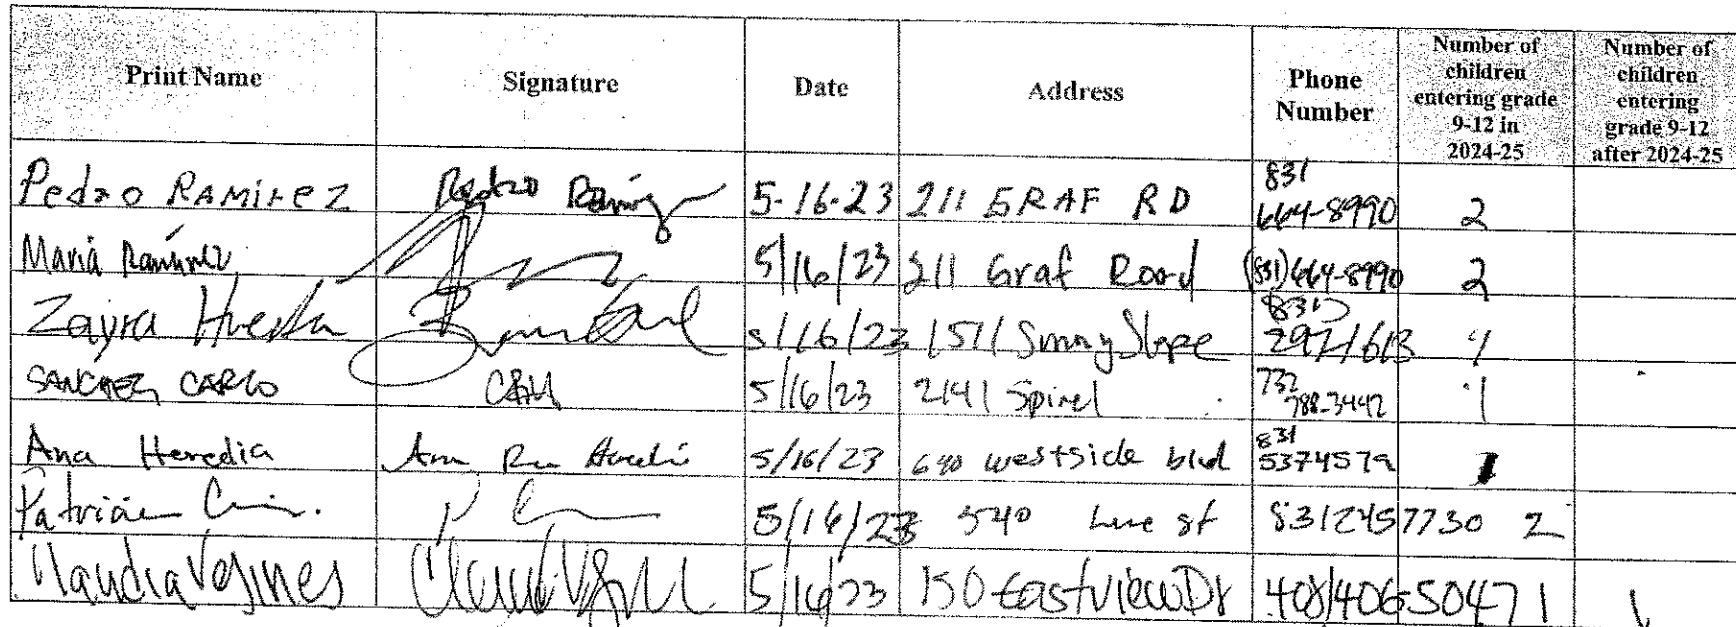 Print Name Signature Date Address Phone Number Number of children entering grade 9-12 in 2024-25 Number of children entering grade 9-12 after 2024-25
Pedro RAMIREZ Pedro 5-16-23 211 GRAF RD 831 664-8990 2
Maria Ramirez 5/16/23 211 Graf Road (831)664-8990 2
Zayra Huerta 5/16/23 1571 Sunny Slope 831) 1
SANCHEZ CARLO 5/16/23 2141 Spinel 732 788-3442 1
Ana Heredia Ana 5/16/23 westside blvd 831 5374579 1
Patricia 5/16/23 540 st 8312457730 2
Claudia 5/16/23 150 Eastview Dr 408/406-5047 1 1